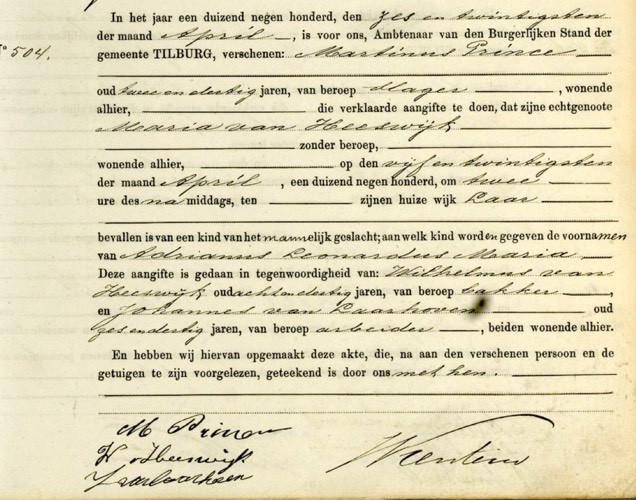 In het jaar een duizend negen honderd, den zes en twintigsten
der maand April, is voor ons, Ambtenaar van den Burgerlijken Stand der
No 504. gemeente TILBURG, verschenen: Martinus Prince
oud twee en dertig jaren, van beroep slager, wonende
alhier, die verklaarde aangifte te doen, dat zijne echtgenoote
Maria van Heeswijk
zonder beroep,
wonende alhier, op den vijf en twintigsten
der maand April, een duizend negen honderd, om twee
ure des namiddags, ten zijnen huize wijk Laar
bevallen is van een kind van het mannelijk geslacht; aan welk kind worden gegeven de voornamen
van Adrianus Leonardus Maria
Deze aangifte is gedaan in tegenwoordigheid van: Wilhelmus van
Heeswijk oud acht en dertig jaren, van beroep bakker,
en Johannes van Laarhoven oud
zes en dertig jaren, van beroep arbeider, beiden wonende alhier.
En hebben wij hiervan opgemaakt deze akte, die, na aan den verschenen persoon en de
getuigen te zijn voorgelezen, geteekend is door ons met hen.
M Prince
W v Heeswijk
J van Laarhoven